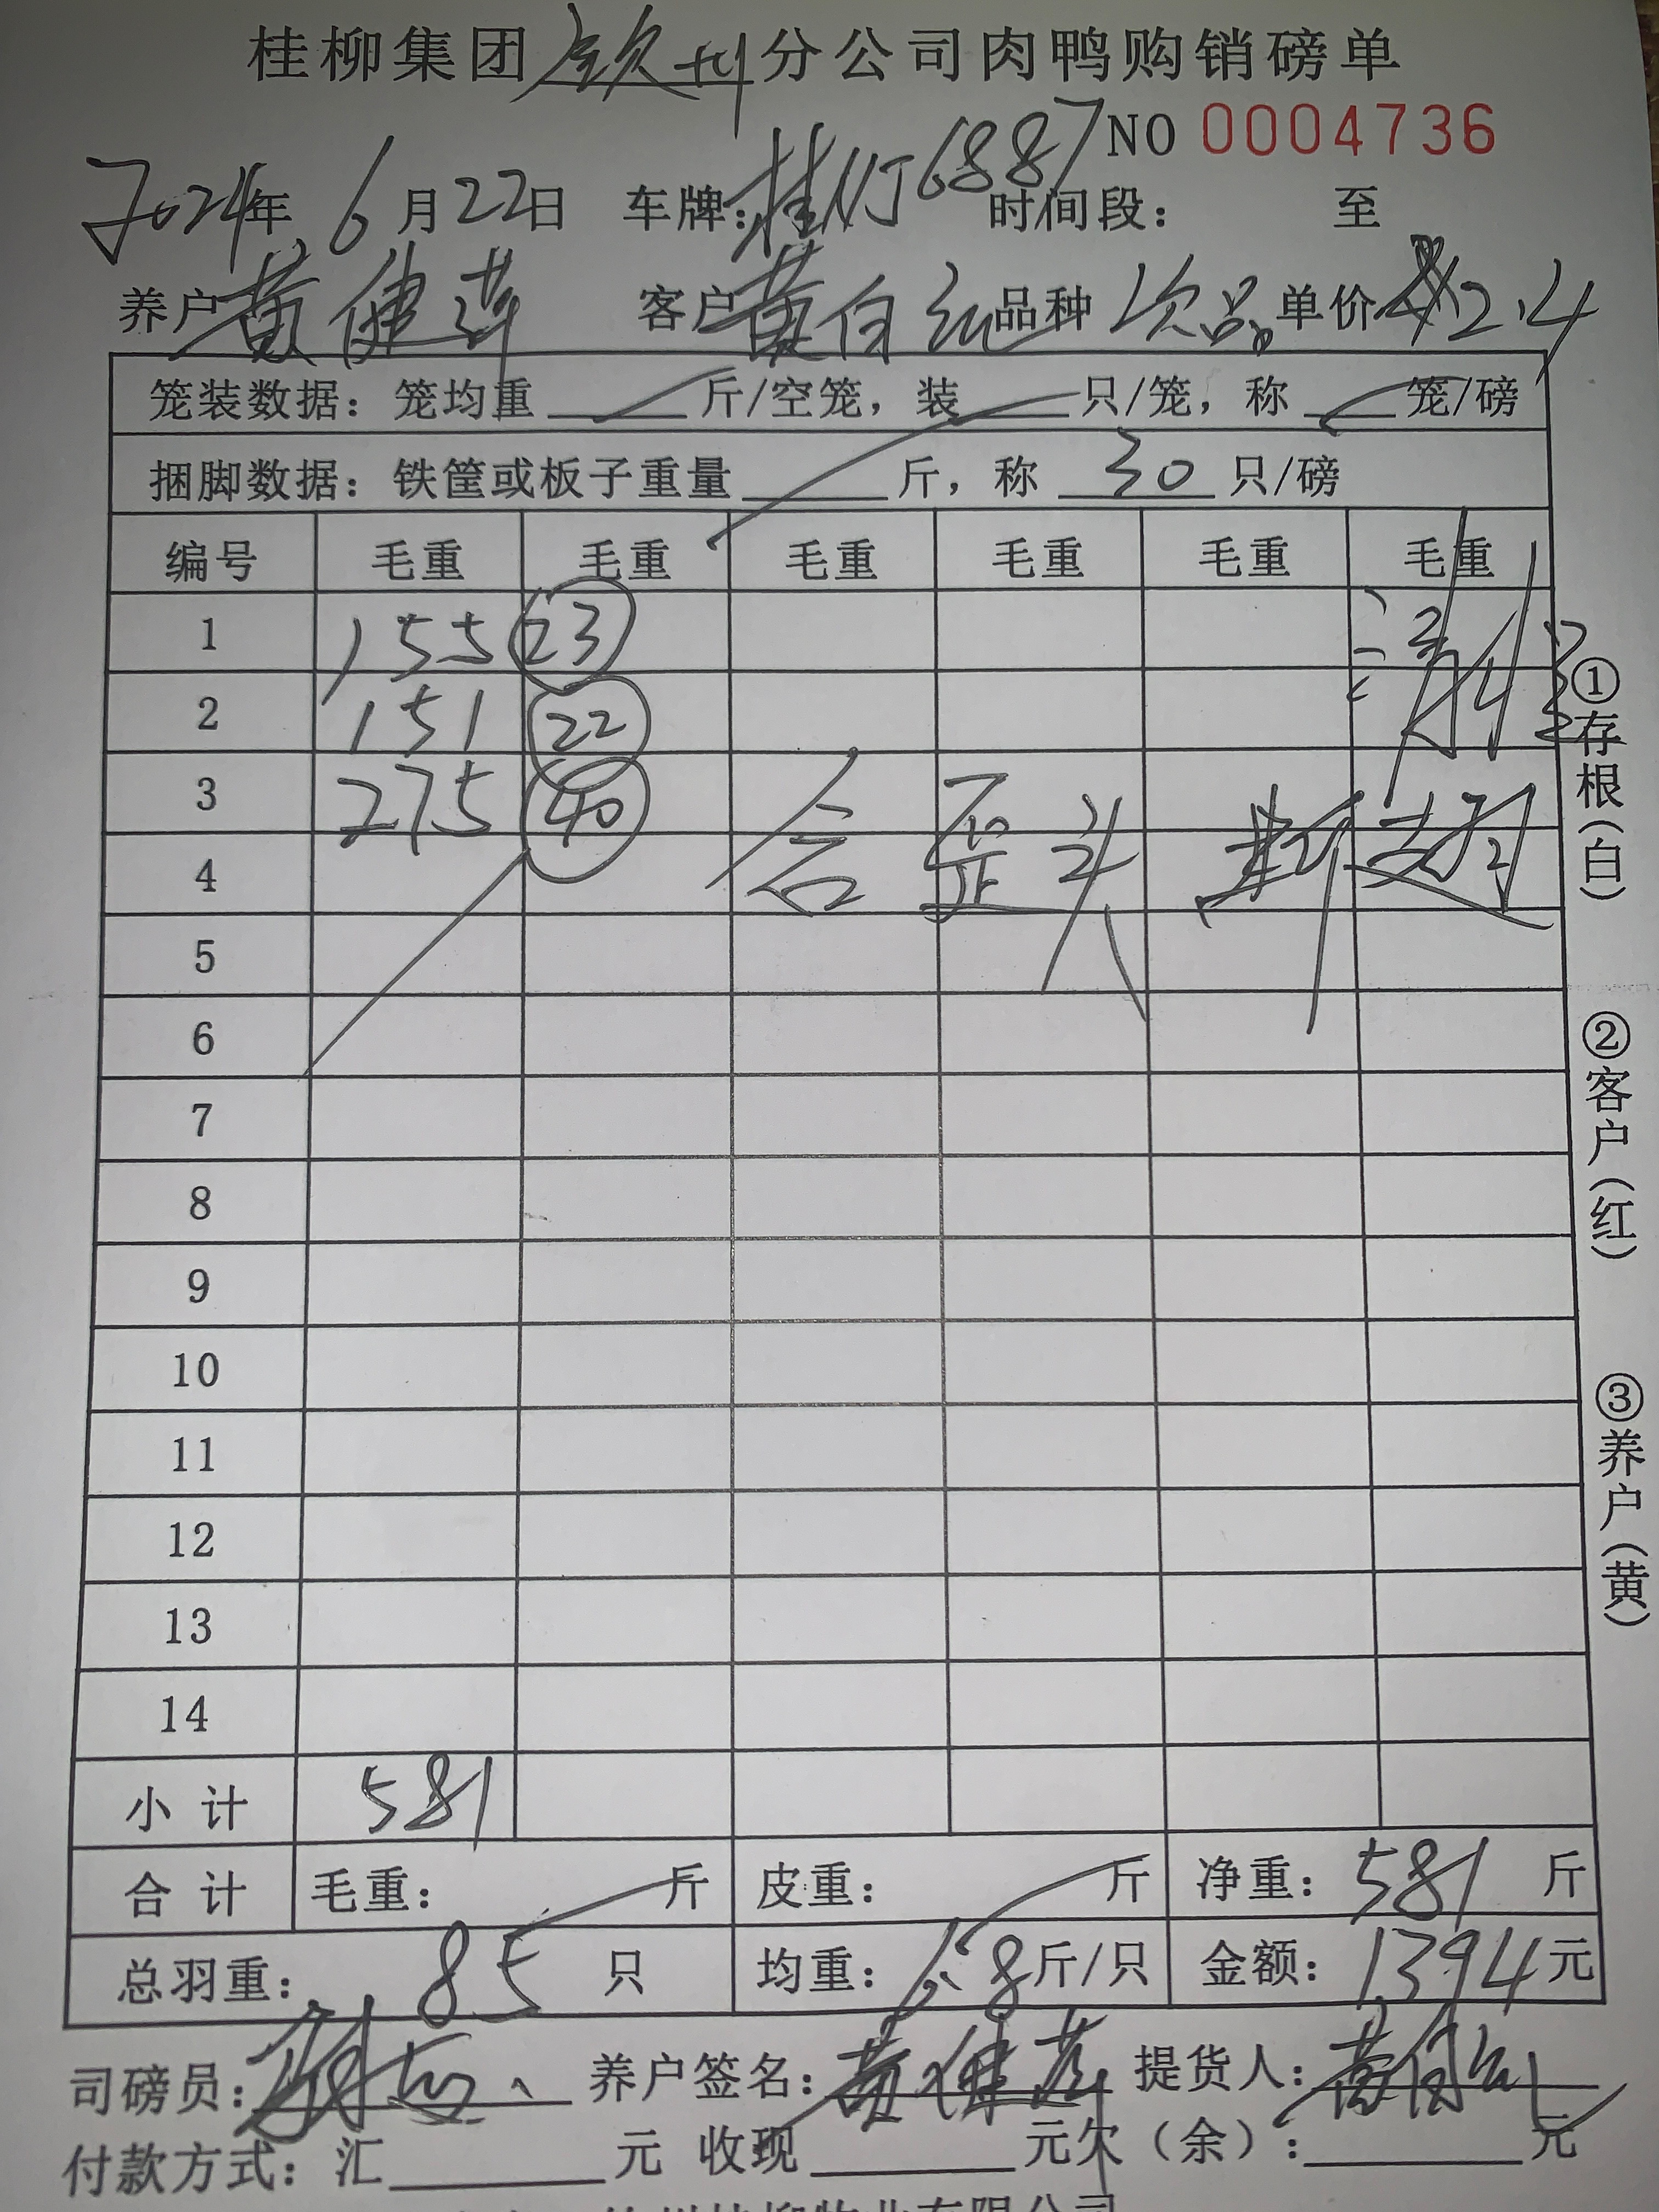 桂柳集团钦州分公司肉鸭购销磅单
NO 0004736
2024年 6月22日 车牌:桂NJ6887 时间段: 至
养户黄健莲 客户黄白 品种 次品 单价 2.4
笼装数据: 笼均重 斤/空笼, 装 只/笼, 称 笼/磅
捆脚数据: 铁筐或板子重量 斤, 称 30 只/磅
编号 毛重 毛重 毛重 毛重 毛重 毛重
1 155 23
2 151 22
3 275 40 含 歪头 断翅
4
5
6
7
8
9
10
11
12
13
14
小计 581
合计 毛重: 斤 皮重: 斤 净重: 581 斤
总羽重: 85 只 均重: 6.8斤/只 金额: 1394元
司磅员: 养户签名: 黄健莲 提货人: 黄白
付款方式: 汇 元 收现 元欠(余): 元
①存根(白)
②客户(红)
③养户(黄)